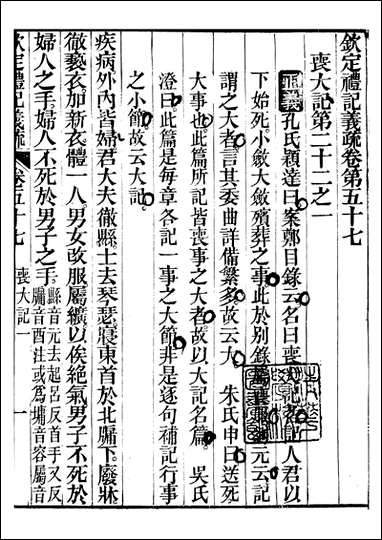 欽定禮記義疏卷第五十七
喪大記第二十二之一
正義孔氏穎達曰案鄭目錄云名曰喪大記者記人君以
下始死小斂大斂殯葬之事此於別錄屬喪服元云記
謂之大者言其委曲詳備繁多故云大 朱氏申曰送死
大事也此篇所記皆喪事之大者故以大記名篇 吳氏
澄曰此篇是每章各記一事之大節非是逐句補記行事
之小節故云大記
疾病外內皆埽君大夫徹縣士去琴瑟寢東首於北牖下廢牀
徹褻衣加新衣體一人男女改服屬纊以俟絕氣男子不死於
婦人之手婦人不死於男子之手
縣音元去起呂反首手又反
牖音酉注或爲墉音容屬音
欽定禮記義疏
卷五十七
喪大記一
一